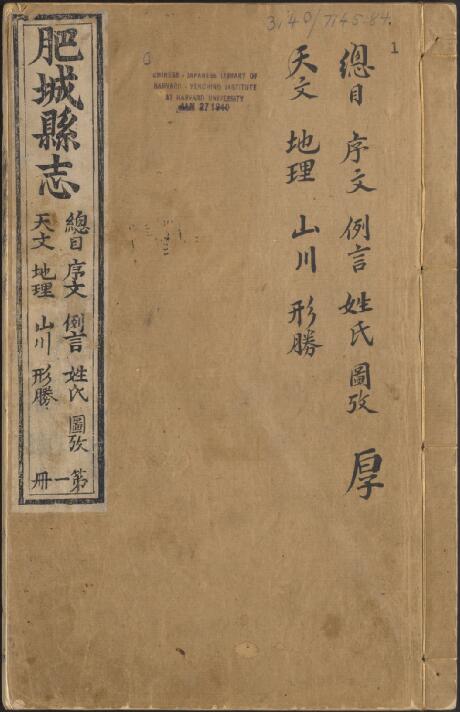 3140/7145.84
1
CHINESE - JAPANESE LIBRARY OF
HARVARD - YENCHING INSTITUTE
AT HARVARD UNIVERSITY
JAN 27 1940
總目 序文 例言 姓氏 圖攷 厚
天文 地理 山川 形勝
肥城縣志
總目 序文 例言 姓氏 圖攷
天文 地理 山川 形勝
第一冊